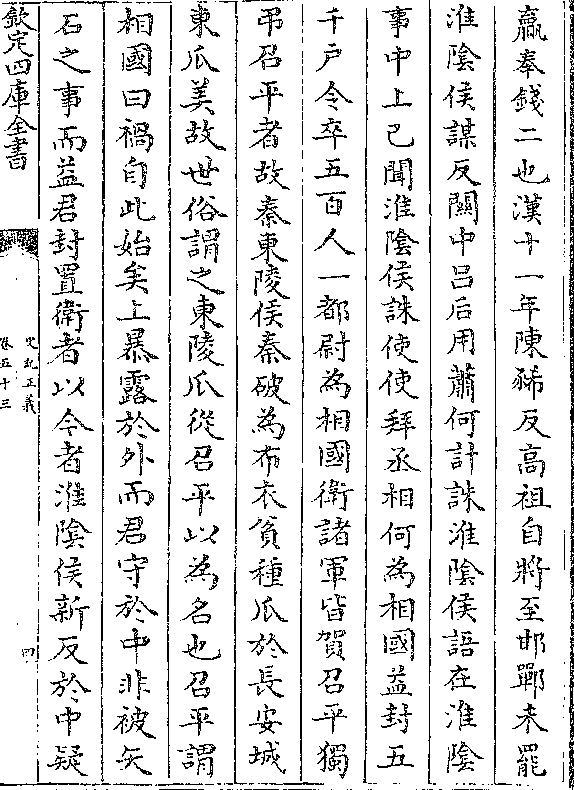 羸奉錢二也漢十一年陳豨反高祖自將至邯鄲未罷
淮陰侯謀反闗中吕后用蕭何計誅淮陰侯語在淮陰
事中上已聞淮陰侯誅使使拜丞相何為相國益封五
千戸令卒五百人一都尉為相國衛諸軍皆賀召平獨
弔召平者故秦東陵侯秦破為布衣貧種瓜於長安城
東瓜美故世俗謂之東陵瓜從召平以為名也召平謂
相國曰禍自此始矣上暴露於外而君守於中非被矢
石之事而益君封置衛者以今者淮陰侯新反於中疑
欽定四庫全書
史記正義
卷五十三
四